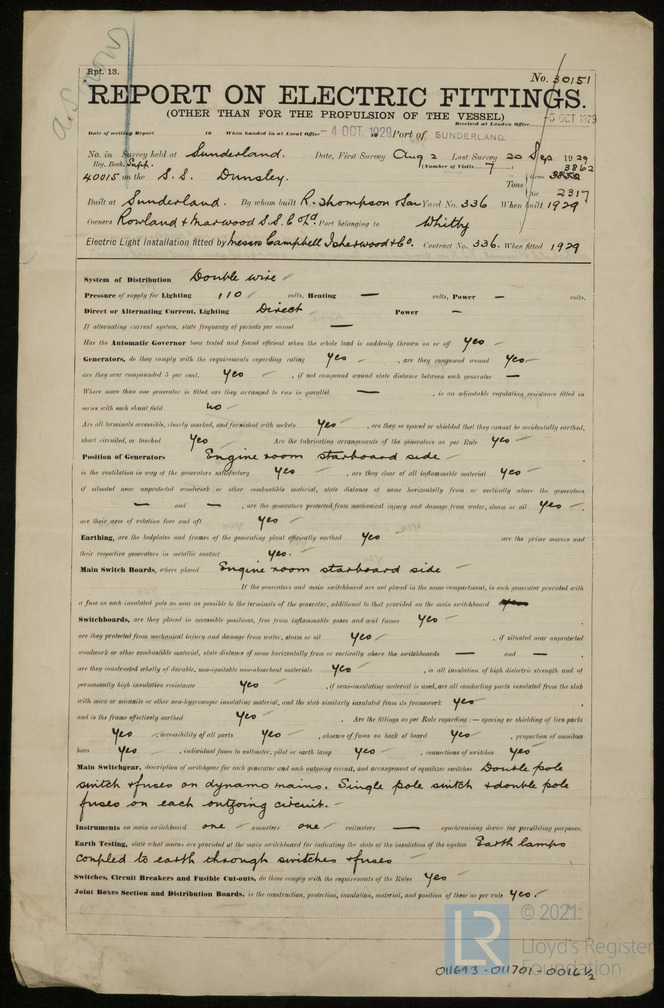 Rpt. 13.
No. 30151
REPORT ON ELECTRIC FITTINGS.
(OTHER THAN FOR THE PROPULSION OF THE VESSEL)
Received at London Office
-5 OCT 1929
Date of writing Report 19 When handed in at Local Office - 4 OCT. 1929 Port of SUNDERLAND.
No. in Survey held at Sunderland. Date, First Survey Aug 2 Last Survey 20 Sep 1929
Reg. Book. Supp. (Number of Visits 7)
40015 on the S.S. Dunsley. Tons 3862
2317
Built at Sunderland. By whom built R. Thompson & Son Yard No. 336 When built 1929
Owners Rowland & Marwood S.S. Co Ld. Port belonging to Whitby
Electric Light Installation fitted by Messrs Campbell Isherwood & Co. Contract No. 336. When fitted 1929
System of Distribution Double wire
Pressure of supply for Lighting 110 volts, Heating — volts, Power — volts.
Direct or Alternating Current, Lighting Direct Power —
If alternating current system, state frequency of periods per second —
Has the Automatic Governor been tested and found efficient when the whole load is suddenly thrown on or off Yes
Generators, do they comply with the requirements regarding rating Yes , are they compound wound Yes
are they over compounded 5 per cent. Yes , if not compound wound state distance between each generator —
Where more than one generator is fitted are they arranged to run in parallel — , is an adjustable regulating resistance fitted in
series with each shunt field no
Are all terminals accessible, clearly marked, and furnished with sockets Yes , are they so spaced or shielded that they cannot be accidentally earthed,
short circuited, or touched Yes Are the lubricating arrangements of the generators as per Rule Yes
Position of Generators Engine room starboard side
is the ventilation in way of the generators satisfactory Yes , are they clear of all inflammable material Yes
if situated near unprotected woodwork or other combustible material, state distance of same horizontally from or vertically above the generators
— and — , are the generators protected from mechanical injury and damage from water, steam or oil Yes
are their axes of rotation fore and aft Yes
Earthing, are the bedplates and frames of the generating plant efficiently earthed Yes are the prime movers and
their respective generators in metallic contact Yes.
Main Switch Boards, where placed Engine room starboard side
If the generators and main switchboard are not placed in the same compartment, is each generator provided with
a fuse on each insulated pole as near as possible to the terminals of the generator, additional to that provided on the main switchboard
Switchboards, are they placed in accessible positions, free from inflammable gases and acid fumes Yes
are they protected from mechanical injury and damage from water, steam or oil Yes , if situated near unprotected
woodwork or other combustible material, state distance of same horizontally from or vertically above the switchboards — and —
are they constructed wholly of durable, non-ignitable non-absorbent materials Yes , is all insulation of high dielectric strength and of
permanently high insulation resistance Yes , if semi-insulating material is used, are all conducting parts insulated from the slab
with mica or micanite or other non-hygroscopic insulating material, and the slab similarly insulated from its framework Yes
and is the frame effectively earthed Yes Are the fittings as per Rule regarding :— spacing or shielding of live parts
Yes , accessibility of all parts Yes , absence of fuses on back of board Yes , proportion of omnibus
bars Yes , individual fuses to voltmeter, pilot or earth lamp Yes , connections of switches Yes
Main Switchgear, description of switchgear for each generator and each outgoing circuit, and arrangement of equalizer switches Double pole
switch & fuses on dynamo mains. Single pole switch & double pole
fuses on each outgoing circuit.
Instruments on main switchboard one ammeters one voltmeters — synchronising device for paralleling purposes.
Earth Testing, state what means are provided at the main switchboard for indicating the state of the insulation of the system Earth lamps
coupled to earth through switches & fuses
Switches, Circuit Breakers and Fusible Cut-outs, do these comply with the requirements of the Rules Yes
Joint Boxes Section and Distribution Boards, is the construction, protection, insulation, material, and position of these as per rule Yes.
LR
© 2021
Lloyd's Register
Foundation
011693-011701-0016 1/2